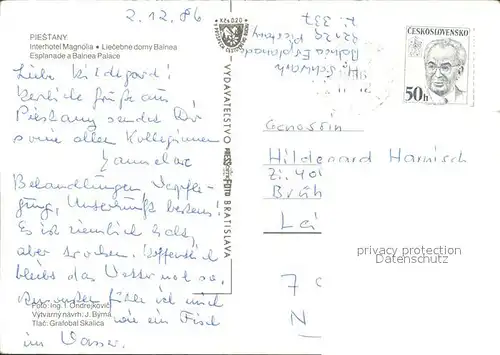 2.12.86
PIEŠŤANY
Interhotel Magnólia • Liečebne domy Balnea
Esplanade a Balnea Palace
Liebe Hildegard!
herzliche Grüße aus
Piestany sendet Dir
sowie allen Kolleginnen
Hannelore
Behandlungen, Verpfle-
gung, Unterkunft bestens!
Es ist ziemlich kalt,
aber trocken. Hoffentlich
bleibt das Wetter noch so.
Ansonsten fühle ich mich
wie ein Fisch
im Wasser.
Foto: Ing. I. Ondrejkovič
Výtvarný návrh: J. Býma
Tlač: Grafobal Skalica
K24020
VYDAVATEĽSTVO PRESSFOTO BRATISLAVA
Balnea Esplanade
Piestany
Z. 337
ČESKOSLOVENSKO
50h
Genossin
Hildegard Harnisch
Zi. 401
Brüh
Lei
privacy protection
privacy protection
7
N